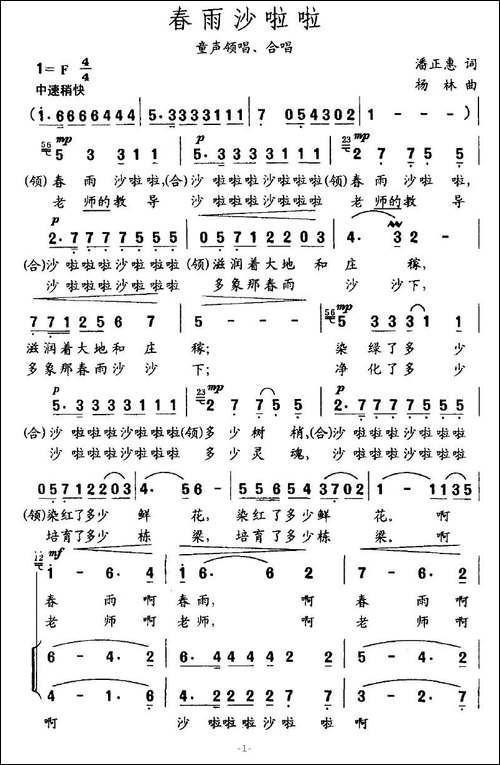 春雨沙啦啦
童声领唱、合唱
1=F 4/4
潘正惠 词
中速稍快
杨林 曲
(1·6666444 | 5·3333111 | 7 054302 | 1 - - -) |
mp p mp
5 3 311 | 5·3333111 | 2 7 75 5 |
(领)春雨沙啦啦,(合)沙啦啦啦沙啦啦啦(领)春雨沙啦啦,
老师的教导 沙啦啦啦沙啦啦啦 老师的教导
p mp
2·7777555 | 05712203 | 4· 3 2 |
(合)沙啦啦啦沙啦啦啦 (领)滋润着大地和庄稼,
沙啦啦啦沙啦啦啦 多象那春雨沙沙下,
mp
771256 7 | 5 - - - | 5 3331 1 |
滋润着大地和庄稼; 染绿了多少
多象那春雨沙沙下; 净化了多少
p mp p
5·3333111 | 2 7 75 5 | 2·7777555 |
(合)沙啦啦啦沙啦啦啦(领)多少树梢,(合)沙啦啦啦沙啦啦啦
沙啦啦啦沙啦啦啦 多少灵魂, 沙啦啦啦沙啦啦啦
05712203 | 4· 56 - | 556543702 | 1 - 1135 |
(领)染红了多少鲜花,染红了多少鲜花。啊
培育了多少栋梁,培育了多少栋梁。啊
mf
1 - 6· 4 | 1 6· 6 2 | 7 - 6· 2 |
春雨啊 春雨, 啊 春雨啊
老师啊 老师, 啊 老师啊
6 - 4· 2 | 6 4 4 4 4 2 2 | 5 - 4· 2 |
4 - 1· 6 | 4 2 2 2 2 7 7 | 2 - 2· 7 |
啊 沙啦啦啦啦 啊
-1-